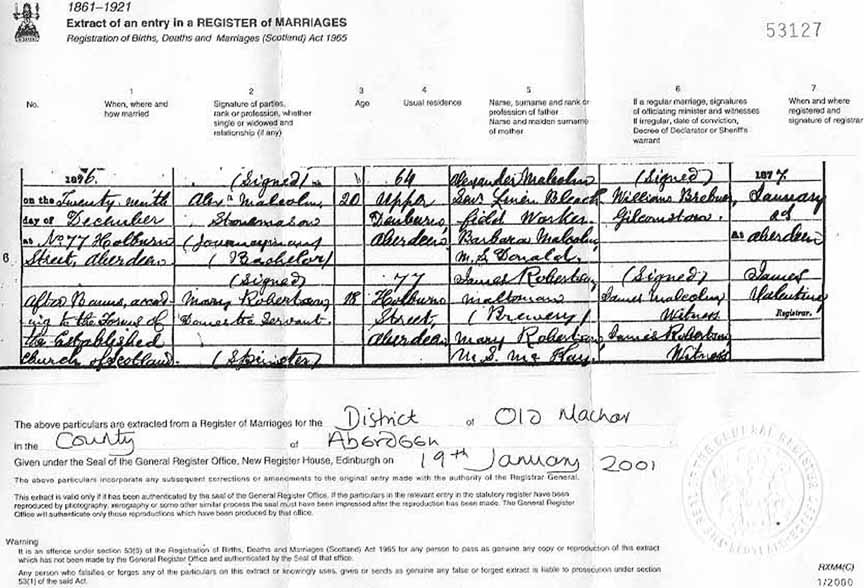 1861–1921
Extract of an entry in a REGISTER of MARRIAGES
Registration of Births, Deaths and Marriages (Scotland) Act 1965
53127
1 2 3 4 5 6 7
No.
When, where and
how married
Signature of parties,
rank or profession, whether
single or widowed and
relationship (if any)
Age
Usual residence
Name, surname and rank or
profession of father
Name and maiden surname
of mother
If a regular marriage, signatures
of officiating minister and witnesses
If irregular, date of conviction,
Decree of Declarator or Sheriff's
warrant
When and where
registered and
signature of registrar
6
1876.
on the Twenty ninth
day of December
at No 77 Holburn
Street, Aberdeen
After Banns, accord-
ing to the Forms of
the Established
Church of Scotland.
(Signed)
Alexr Malcolm,
Stonemason
(Journeyman)
(Bachelor)
(Signed)
Mary Robertson
Domestic Servant.
(Spinster)
20
18
64
Upper
Aberdeen
77
Holburn
Street,
Aberdeen
Alexander Malcolm
Linen Bleach
field Worker.
Barbara Malcolm
M.S. Donald.
James Robertson,
Maltman
(Brewery)
Mary Robertson
M.S. McKay.
(Signed)
William Brebner,
Gilcomston.
(Signed)
James Malcolm
Witness
James Robertson
Witness
1877.
January
2d
At Aberdeen
James
Valentine
Registrar.
The above particulars are extracted from a Register of Marriages for the District of Old Machar
in the County of Aberdeen
Given under the Seal of the General Register Office, New Register House, Edinburgh on 19th January 2001
The above particulars incorporate any subsequent corrections or amendments to the original entry made with the authority of the Registrar General.
This extract is valid only if it has been authenticated by the seal of the General Register Office. If the particulars in the relevant entry in the statutory register have been
reproduced by photography, xerography or some other similar process the seal must have been impressed after the reproduction has been made. The General Register
Office will authenticate only those reproductions which have been produced by that office.
Warning
It is an offence under section 53(3) of the Registration of Births, Deaths and Marriages (Scotland) Act 1965 for any person to pass as genuine any copy or reproduction of this extract
which has not been made by the General Register Office and authenticated by the Seal of that office.
Any person who falsifies or forges any of the particulars on this extract or knowingly uses, gives or sends as genuine any false or forged extract is liable to prosecution under section
53(1) of the said Act.
RXM4(C)
1/2000